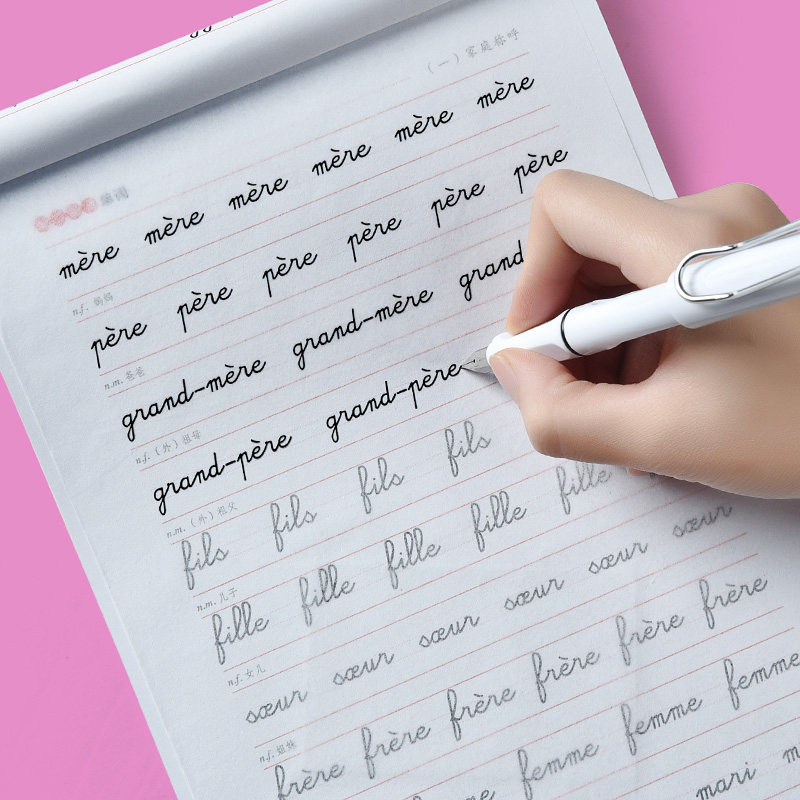 (一) 家庭称呼
单词
mère mère mère mère mère mère
nf. 妈妈
père père père père père père
n.m. 爸爸
grand-mère grand-mère grand
nf. (外) 祖母
grand-père grand-père
n.m. (外) 祖父
fils fils fils fils
n.m. 儿子
fille fille fille fille fille
nf. 女儿
sœur sœur sœur sœur sœur sœur
nf. 姐妹
frère frère frère frère frère frère
femme femme femme
mari